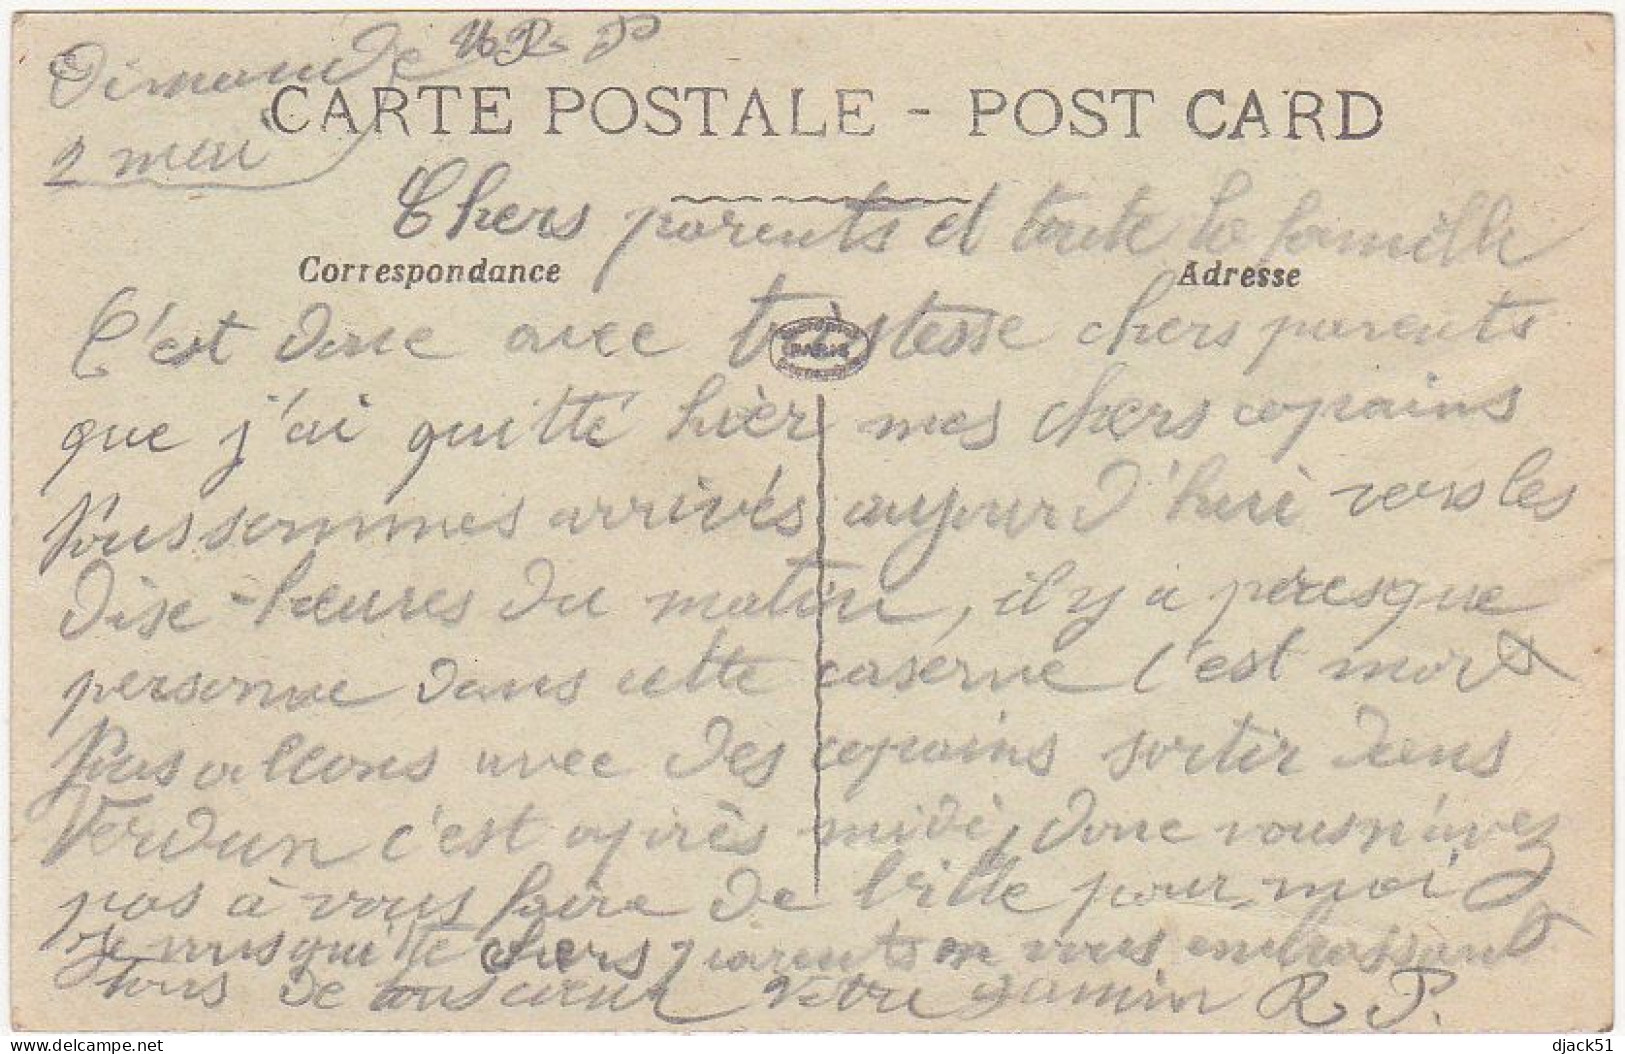 Dimanche
CARTE POSTALE - POST CARD
2 mai
Chers parents et toute la famille
Correspondance
Adresse
C'est donc avec tristesse chers parents
que j'ai quitté hièr mes chers copains
Noussommes arrivés aujourd'hui vers les
dise-heures du matin, il y a presque
personne dans cette caserne c'est mort
Nous allons avec des copains sortir dans
Verdun c'est après midi, donc vous n'avez
pas à vous faire de bille pour moi
Je vous quitte chers parents en vous embrassant
tous de tous coeur Votre gamin R. P.
djack51
delcampe.net